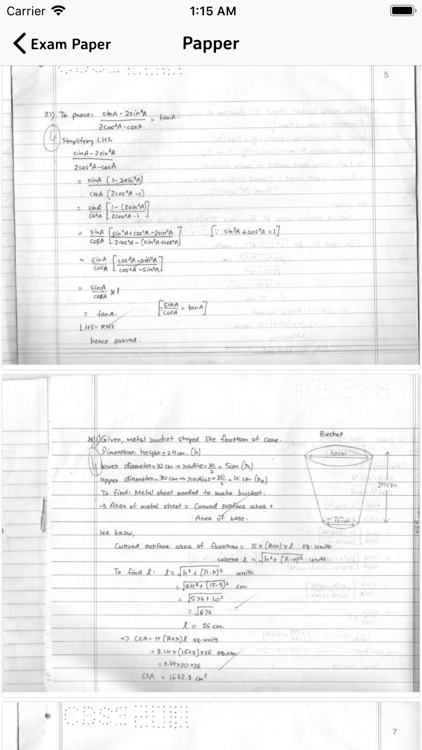 Carrier
1:15 AM
Exam Paper
Papper
5
27) To prove: sinA - 2sin³A / 2cos³A - cosA = tanA.
4
Simplifying LHS:
sinA - 2sin³A / 2cos³A - cosA
= sinA (1 - 2sin²A) / cosA (2cos²A - 1)
= sinA / cosA [1 - (2sin²A) / 2cos²A - 1]
= sinA / cosA [sin²A + cos²A - 2sin²A / 2cos²A - (sin²A + cos²A)] [∵ sin²A + cos²A = 1]
= sinA / cosA [cos²A - sin²A / cos²A - sin²A]
= sinA / cosA × 1
= tanA. [sinA / cosA = tanA]
LHS = RHS
hence proved.
Given, metal bucket shaped like frustum of cone.
Bucket
Dimension height = 24cm. (h)
Lower diameter = 10cm → radius = 10/2 = 5cm (r)
30cm
Upper diameter = 30cm → radius = 30/2 = 15 cm (R)
24cm
To find: Metal sheet needed to make bucket.
10cm
→ Area of metal sheet = Curved surface area +
Area of base.
We know,
Curved surface area of frustum = π × (R+r) × l sq. units.
where l = √h² + (R-r)² units.
To find l: l = √h² + (R-r)² units
= √24² + (15-5)² cm
= √576 + 10²
= √676
l = 26 cm.
⇒ CSA = π (R+r) l sq. units
= 3.14 × (15+5) × 26 sq. cm
= 3.14 × 20 × 26
CSA = 1632.8 cm²
CBSE
7